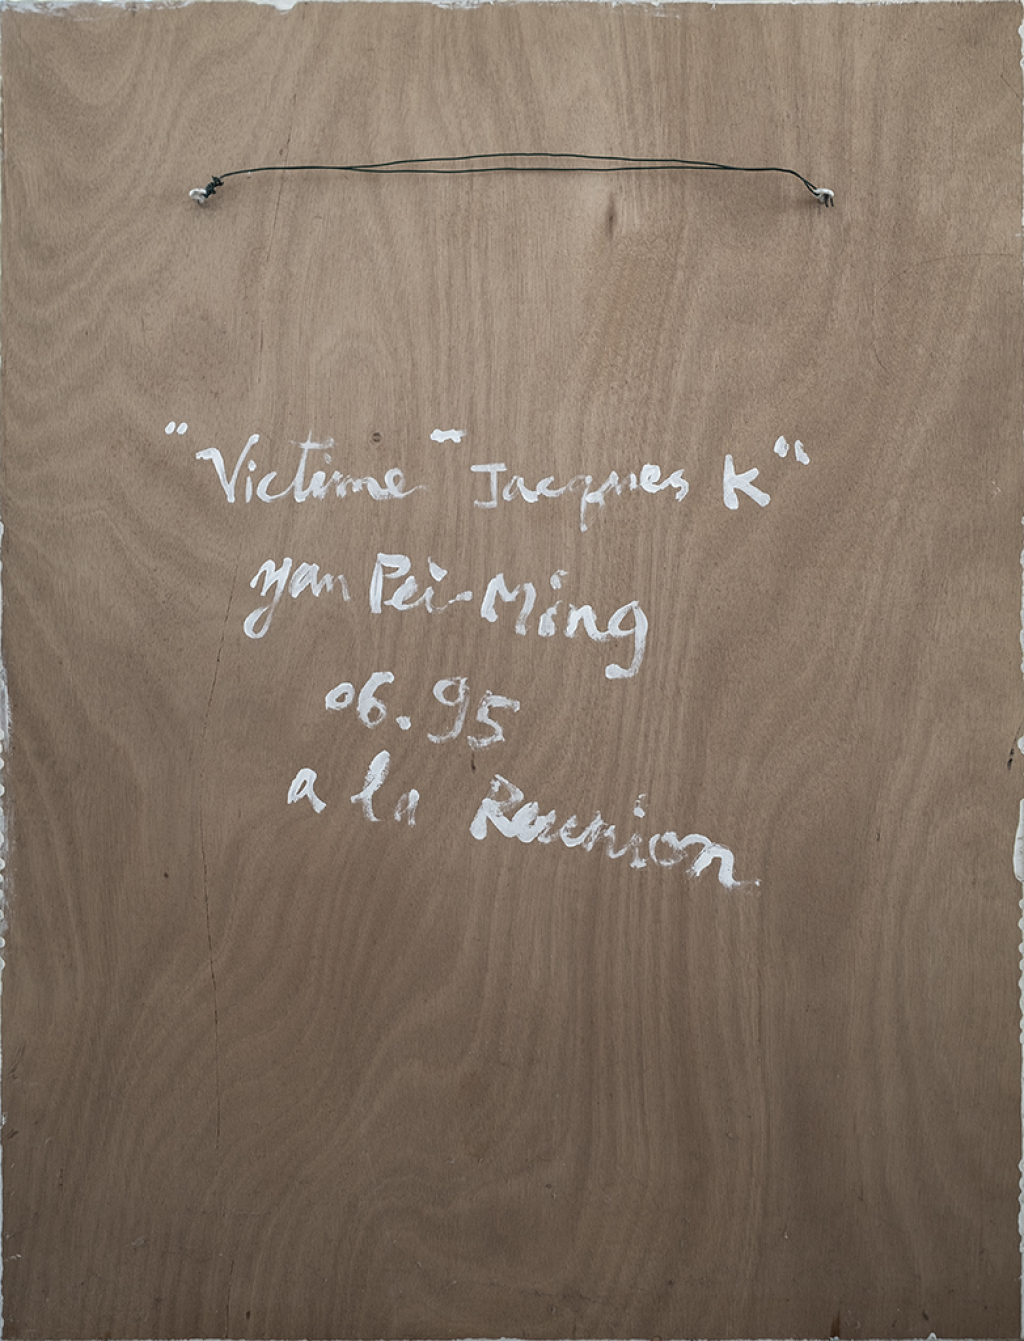 "Victime - Jacques K"
yan Pei-Ming
06.95
a la Reunion